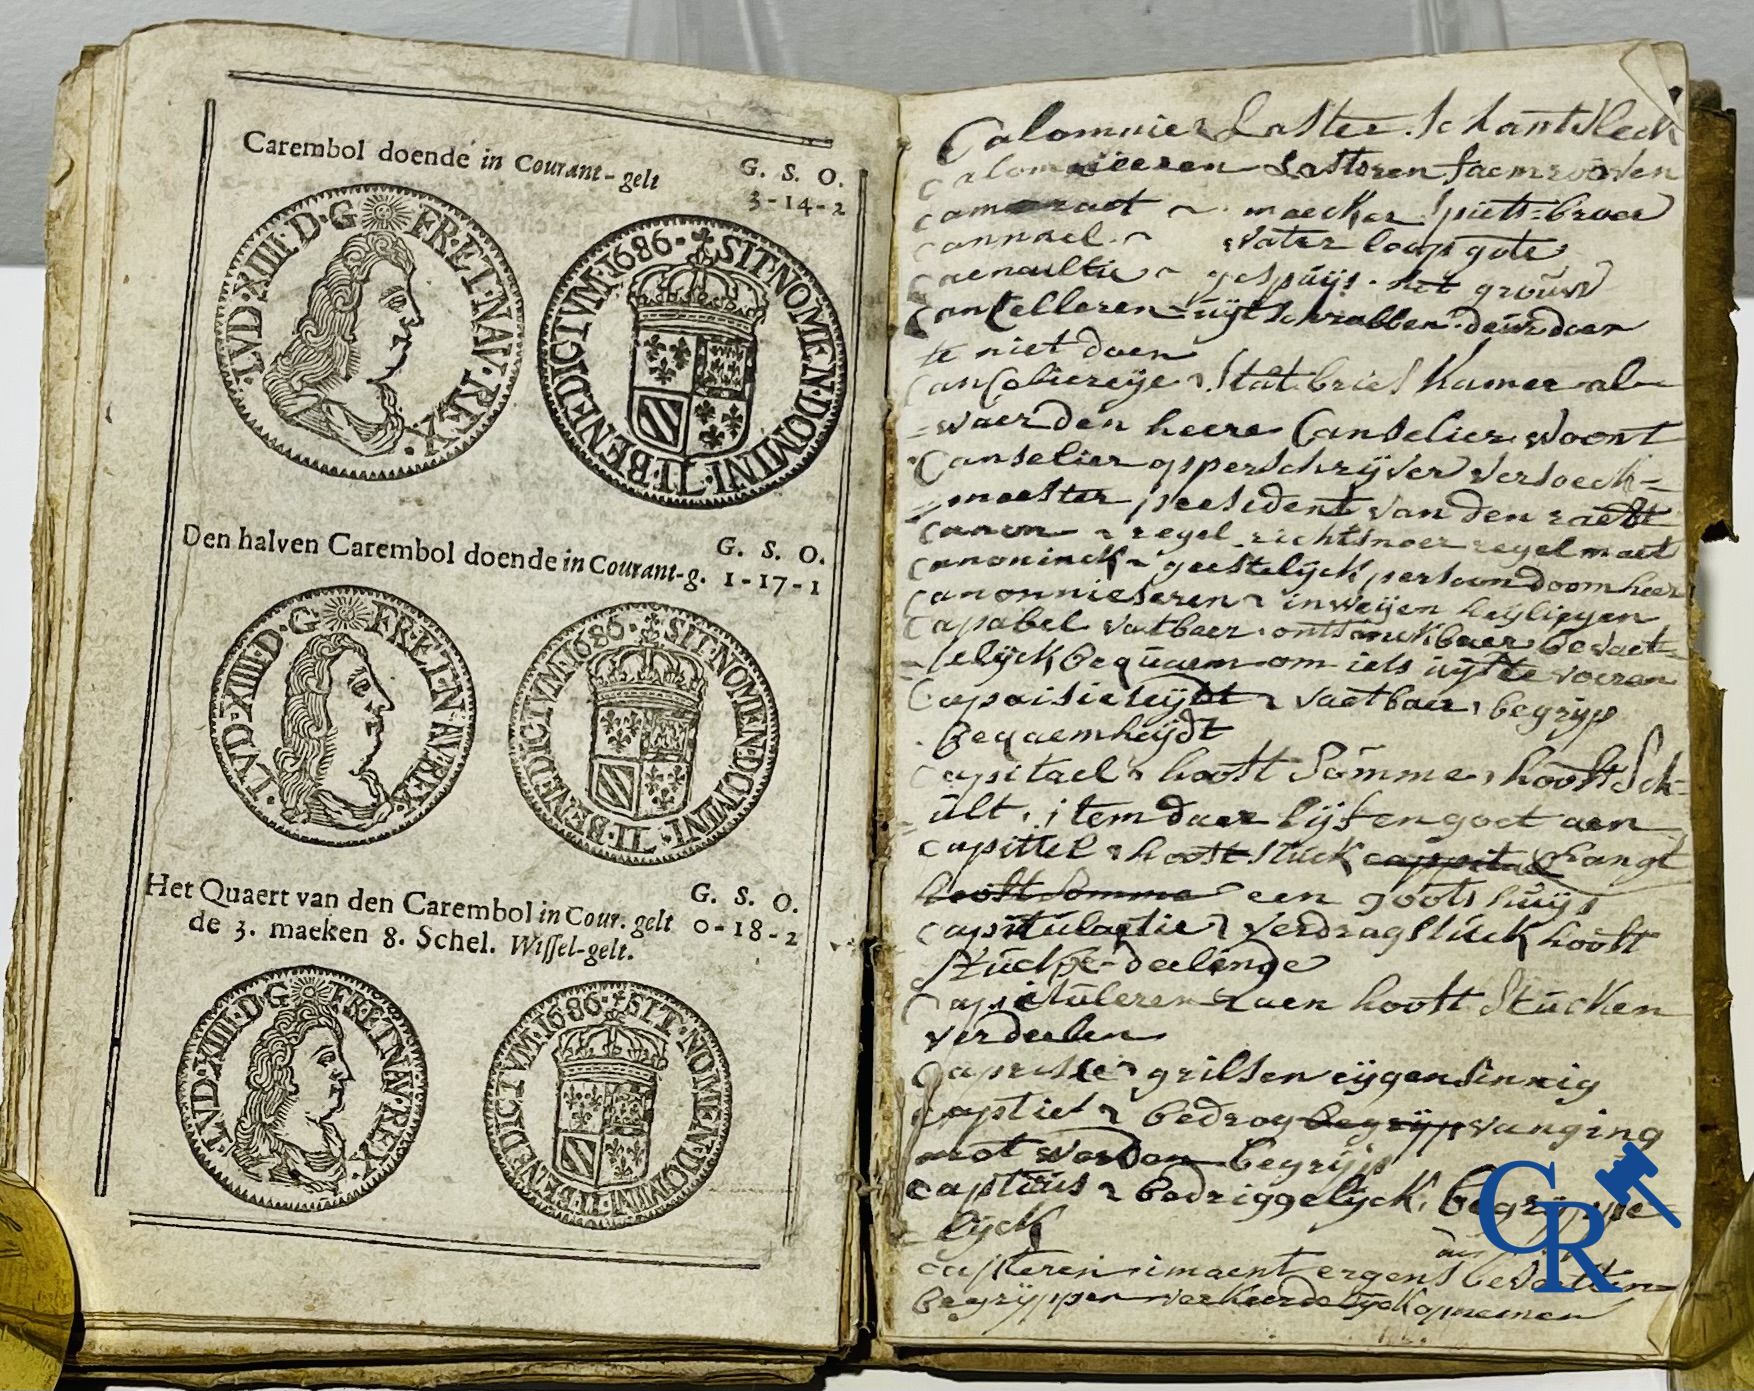 Carembol doende in Courant-gelt
G. S. O.
3-14-2
LVD·XIIII·D·G FR·ET·NAV·REX·
1686· SIT·NOMEN·DOMINI· BENEDICTVM·
Den halven Carembol doende in Courant-g.
G. S. O.
1-17-1
LVD·XIIII·D·G· FR·ET·NAV·REX·
1686· SIT·NOMEN·DOMINI· BENEDICTVM·
Het Quaert van den Carembol in Cour. gelt
G. S. O.
0-18-2
de 3. maeken 8. Schel. Wissel-gelt.
LVD·XIIII·D·G FR·ET·NAV·REX·
1686· SIT·NOMEN·DOMINI· BENEDICTVM·
Calomnie Laster. schantvleck
Calomnieeren Lasteren faemrooven
camaraet maecker spiets-broer
cannael water loop gote
caenailie gespuys. het grouw
Cancelleren uijtschrabben deurdoen
te niet doen
Canceliereije Stat brief kamer al-
waer den heere Canselier woont
Canselier opperschrijver versoeck-
meester president van den raedt
canon regel richtsnoer regel maet
canoninck geestelijck persoon doomheer
canonniseren inweijen heyligen
capabel vatbaer ontfanckbaer bevaet-
lelijck bequaem om iets uijt te voeren
Capaisiteijdt vaetbaer begrijp
bequaemheijdt
capitael hooft Somme hooft Sch-
ult. item daer lijf en goet aen
capittel hooft stuck cappital hangt
hooft Somme een goots huijs
capitulaetie verdragstuck hooft
Stucke-deelinge
Capituleren aen hooft Stucken
verdeelen
caprisse grilsen eijgensinnig
captie bedrog begrijp vanging
wat worden begrijp
captieus bedriggelijck begrijpe
lijck
capteren imaent ergens bevatten
begrijppen verkeerdelijck opnemen
CR